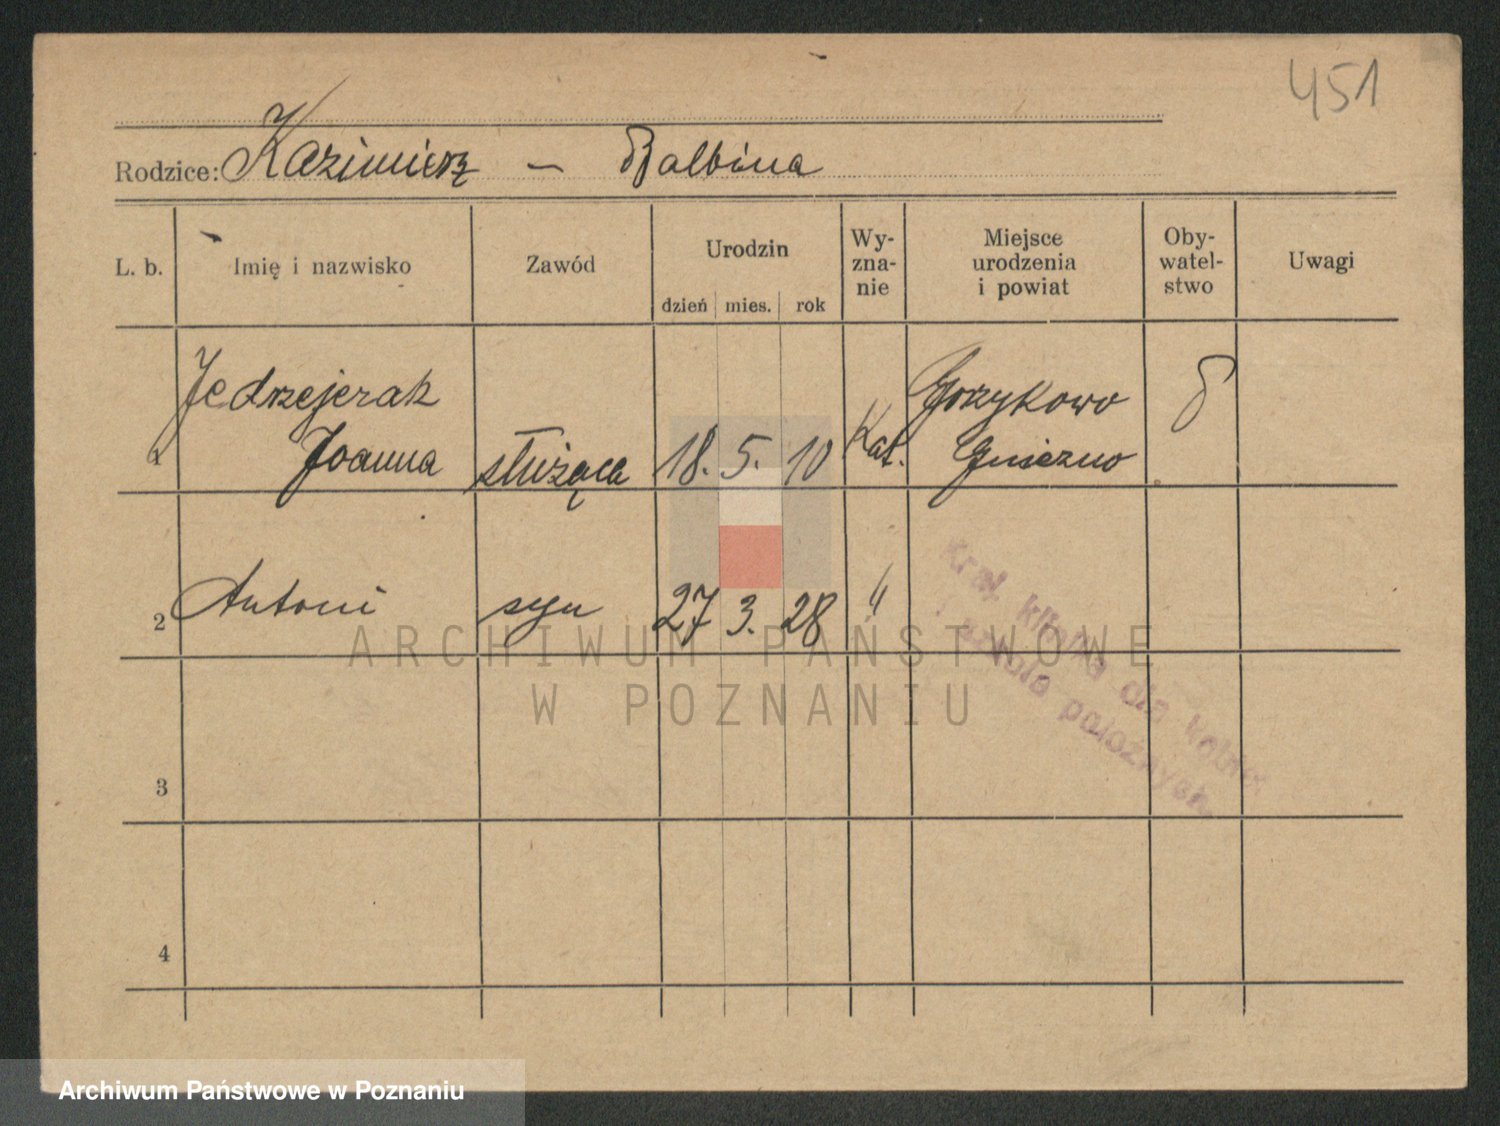 451
Rodzice: Kazimierz – Balbina
L. b.
Imię i nazwisko
Zawód
Urodzin
dzień mies. rok
Wy-
zna-
nie
Miejsce
urodzenia
i powiat
Oby-
watel-
stwo
Uwagi
Jedrzejczak Gorzykowo
1 Joanna służąca 18. 5. 10 Kat. Gniezno
2 Antoni syn 27 3. 28 "
Kraj. klinika dla kobiet
i szkoła położnych
3
4
ARCHIWUM PAŃSTWOWE
W POZNANIU
Archiwum Państwowe w Poznaniu